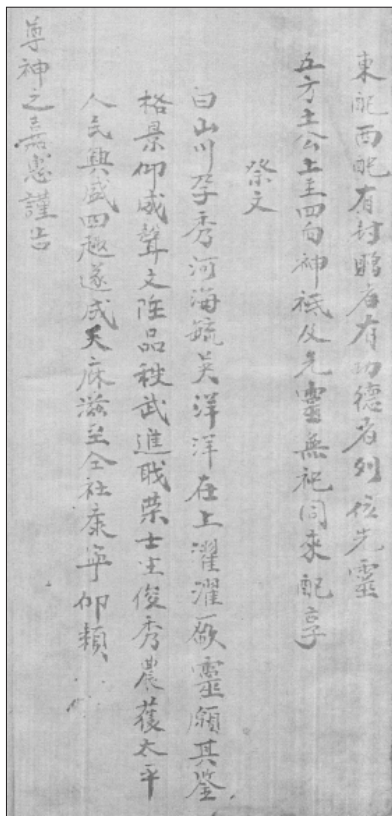 東配西配有封賜者有功德者列位先靈
五方土公土主四旬神祇及先靈無祀同來配享
祭文
曰山川孕秀河海毓英洋洋在上濯濯厥靈願其鑒
格景仰咸聲文陞品秩武進职荣士生俊秀農獲太平
人民興盛四趣遂成天庥滋至仝社康寧仰頼
尊神之嘉惠謹告